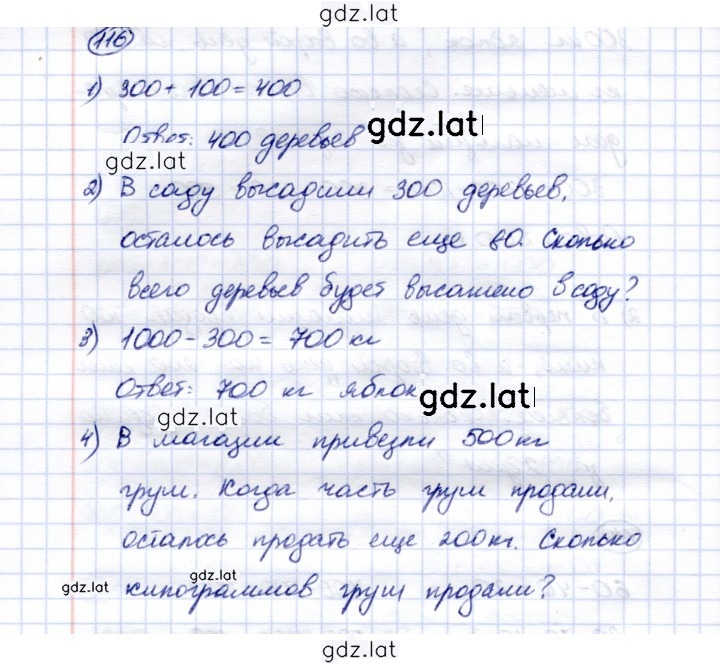 gdz.lat
116
1) 300 + 100 = 400
Ответ: 400 деревьев gdz.lat
gdz.lat
2) В саду высадили 300 деревьев,
осталось высадить еще 60. Сколько
всего деревьев будет высажено в саду?
3) 1000 - 300 = 700 кг
Ответ: 700 кг яблок gdz.lat
4) В магазин привезли 500 кг
груш. Когда часть груш продали,
осталось продать еще 200 кг. Сколько
gdz.lat килограммов груш продали? gdz.lat
gdz.lat